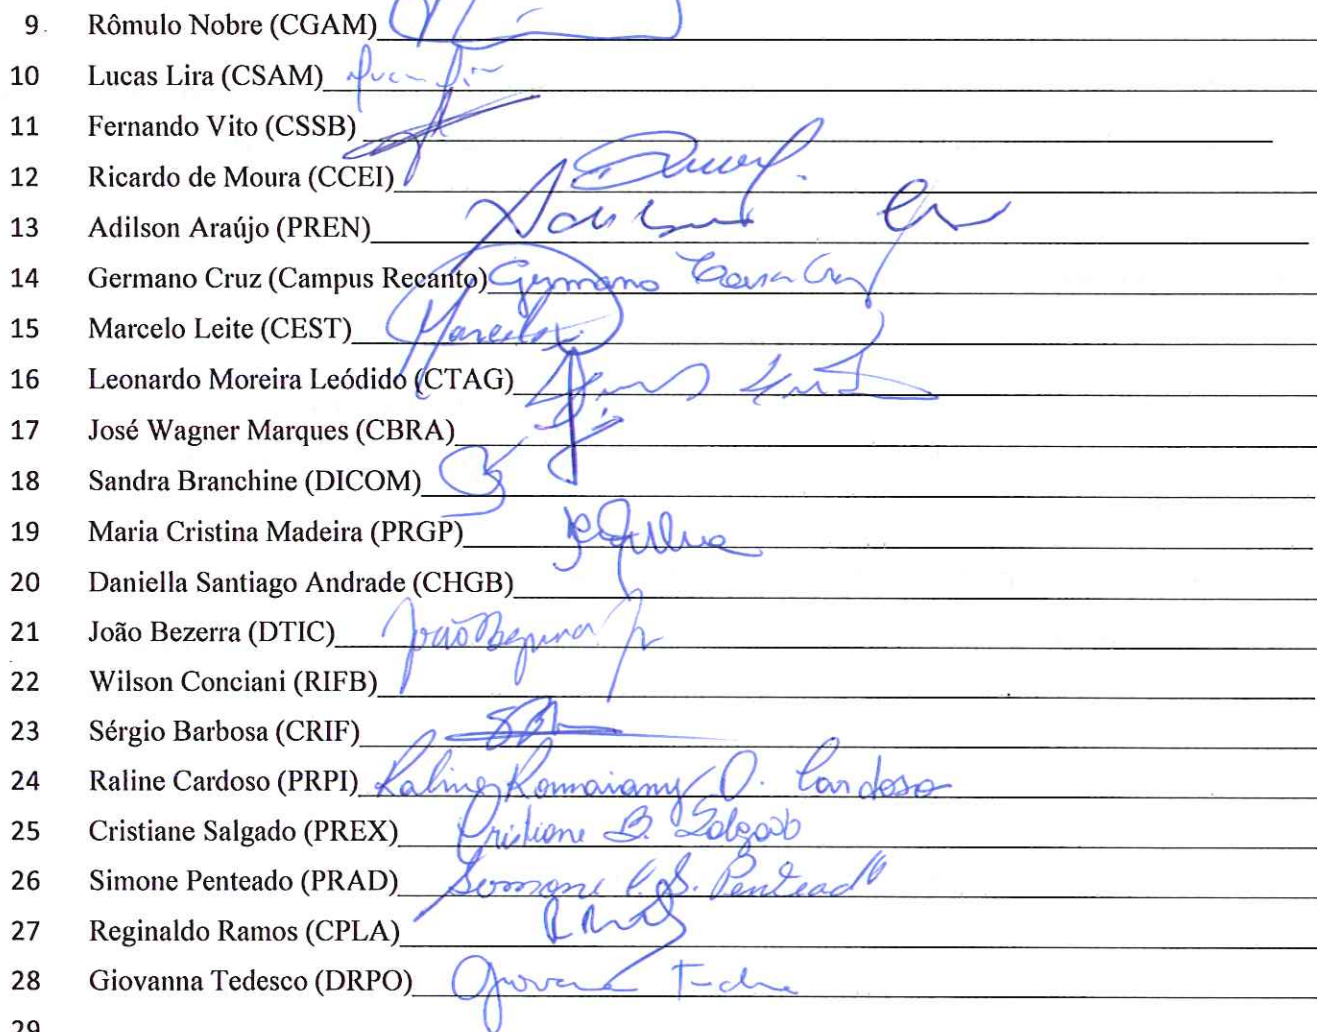 9. Rômulo Nobre (CGAM)
10 Lucas Lira (CSAM)
11 Fernando Vito (CSSB)
12 Ricardo de Moura (CCEI)
13 Adilson Araújo (PREN) Adilson
14 Germano Cruz (Campus Recanto) Germano Cruz
15 Marcelo Leite (CEST) Marcelo
16 Leonardo Moreira Leódido (CTAG)
17 José Wagner Marques (CBRA)
18 Sandra Branchine (DICOM)
19 Maria Cristina Madeira (PRGP)
20 Daniella Santiago Andrade (CHGB)
21 João Bezerra (DTIC) João Bezerra Jr
22 Wilson Conciani (RIFB)
23 Sérgio Barbosa (CRIF)
24 Raline Cardoso (PRPI) Raline O. Cardoso
25 Cristiane Salgado (PREX) Cristiane B. Salgado
26 Simone Penteado (PRAD) Simone C. S. Penteado
27 Reginaldo Ramos (CPLA)
28 Giovanna Tedesco (DRPO)
29